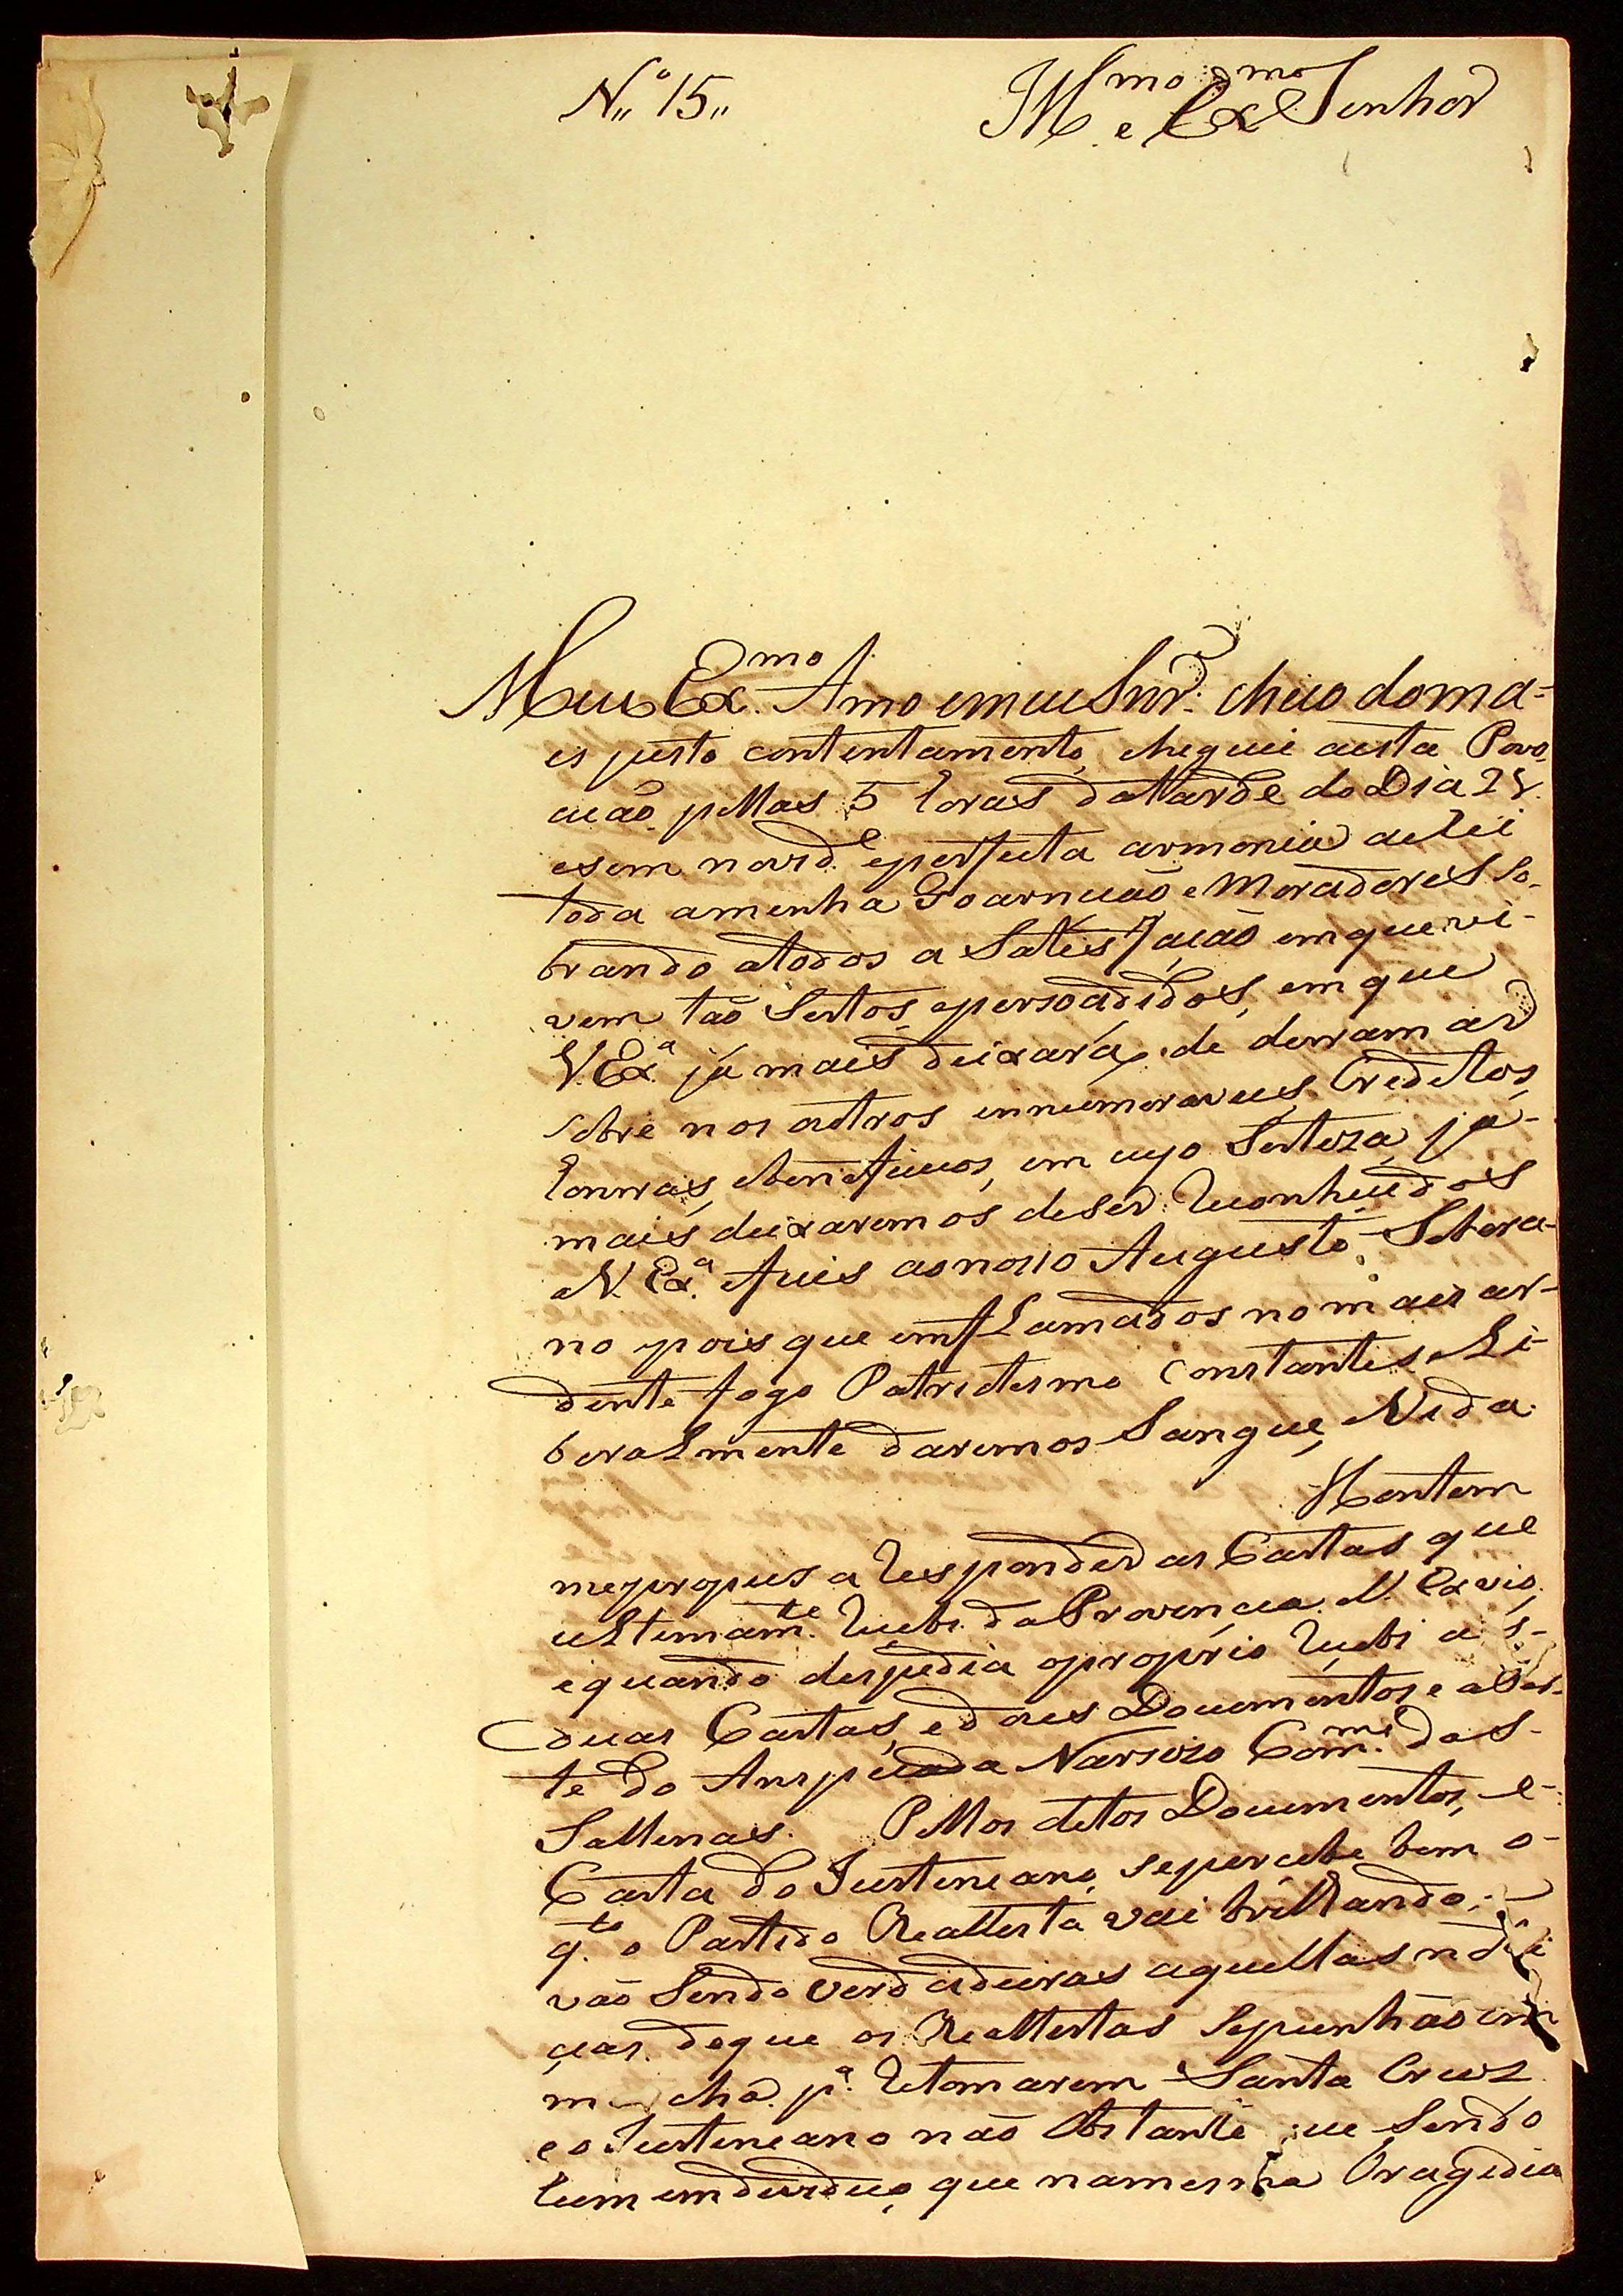 N,, º 15,,
Ill.mo e Ex.mo Senhor
Meu Ex.mo Amo emeu Snr.' cheio doma-
es justo contentamento, cheguei aesta Povo,
acão pellas 5 horas datarde do Dia 28.
esem novid.e eperfeita armonia achei
toda aminha Goarnicão e Moradores so-
brando atodos a Satis façaõ emque vi-
vem tão Sertos epersoadidos, em que
V. Ex.a já mais deixará, de derramar
sobre nos outros innumeraveis Creditos,
honrras, ebeneficios, em cujo Serteza, ja-
mais deixaremos deser reconhecidos
aV. Ex.a efieis aonosso Augusto Sobera-
no pois que emfLamados nomais ar-
dente fogo Patriotismo Constantes eLi-
beraLmente daremos Sangue, eVida
Hontem
mepropus a responder as Cartas que
uLtimam.te recebi daProvincia
equando despedia oproprio recebi as-
duas Cartas, edoes Documentos e aPar-
te do Anspeçada Narsizo Com.me das-
Sallinas. Pellos ditos Documentos, e-
Carta do Justineano, sepercebe bem o-
q.to o Partido Reallista vai brilhando,
vão Sendo verdadeiras aquellas noti
cias deque os Reallistas sepunhão em
marcha p.a retomarem Santa Crus
eo Justineano não Obstante que sendo
hum endeviduo, que namesma Tragedia